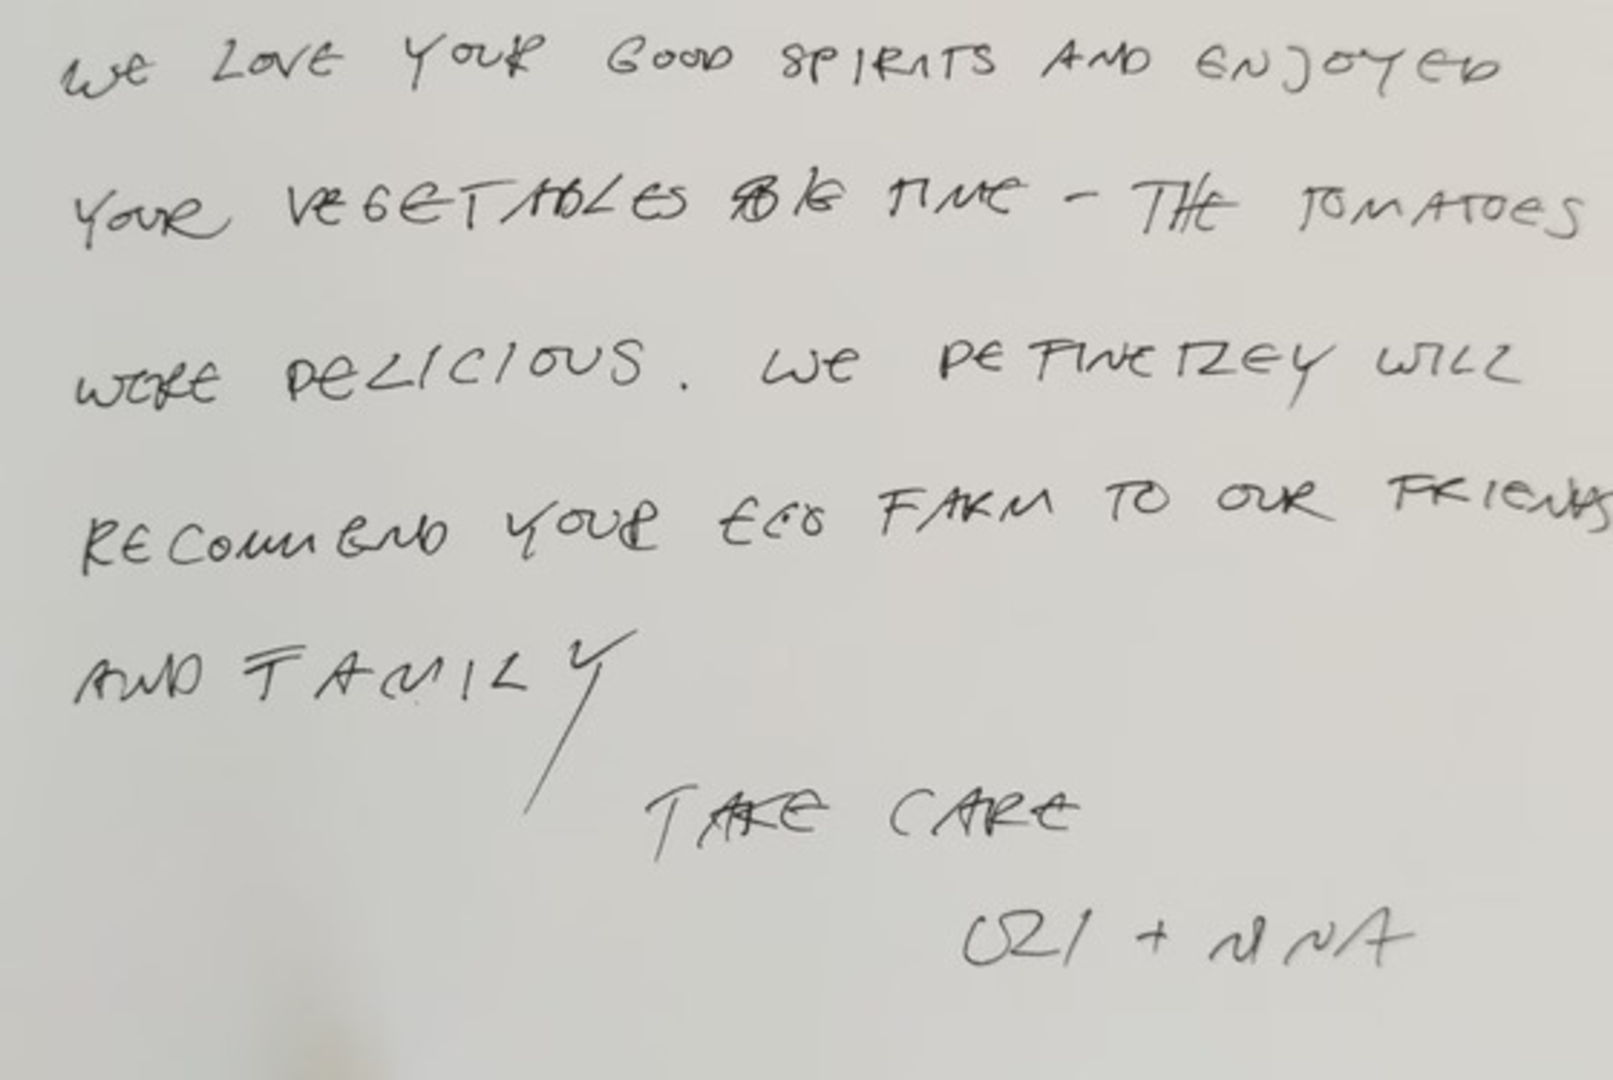 WE LOVE YOUR GOOD SPIRITS AND ENJOYED
YOUR VEGETABLES BIG TIME - THE TOMATOES
WERE DELICIOUS. WE DEFINETLEY WILL
RECOMMEND YOUR ECO FARM TO OUR FRIENDS
AND FAMILY
TAKE CARE
UZI + NINA